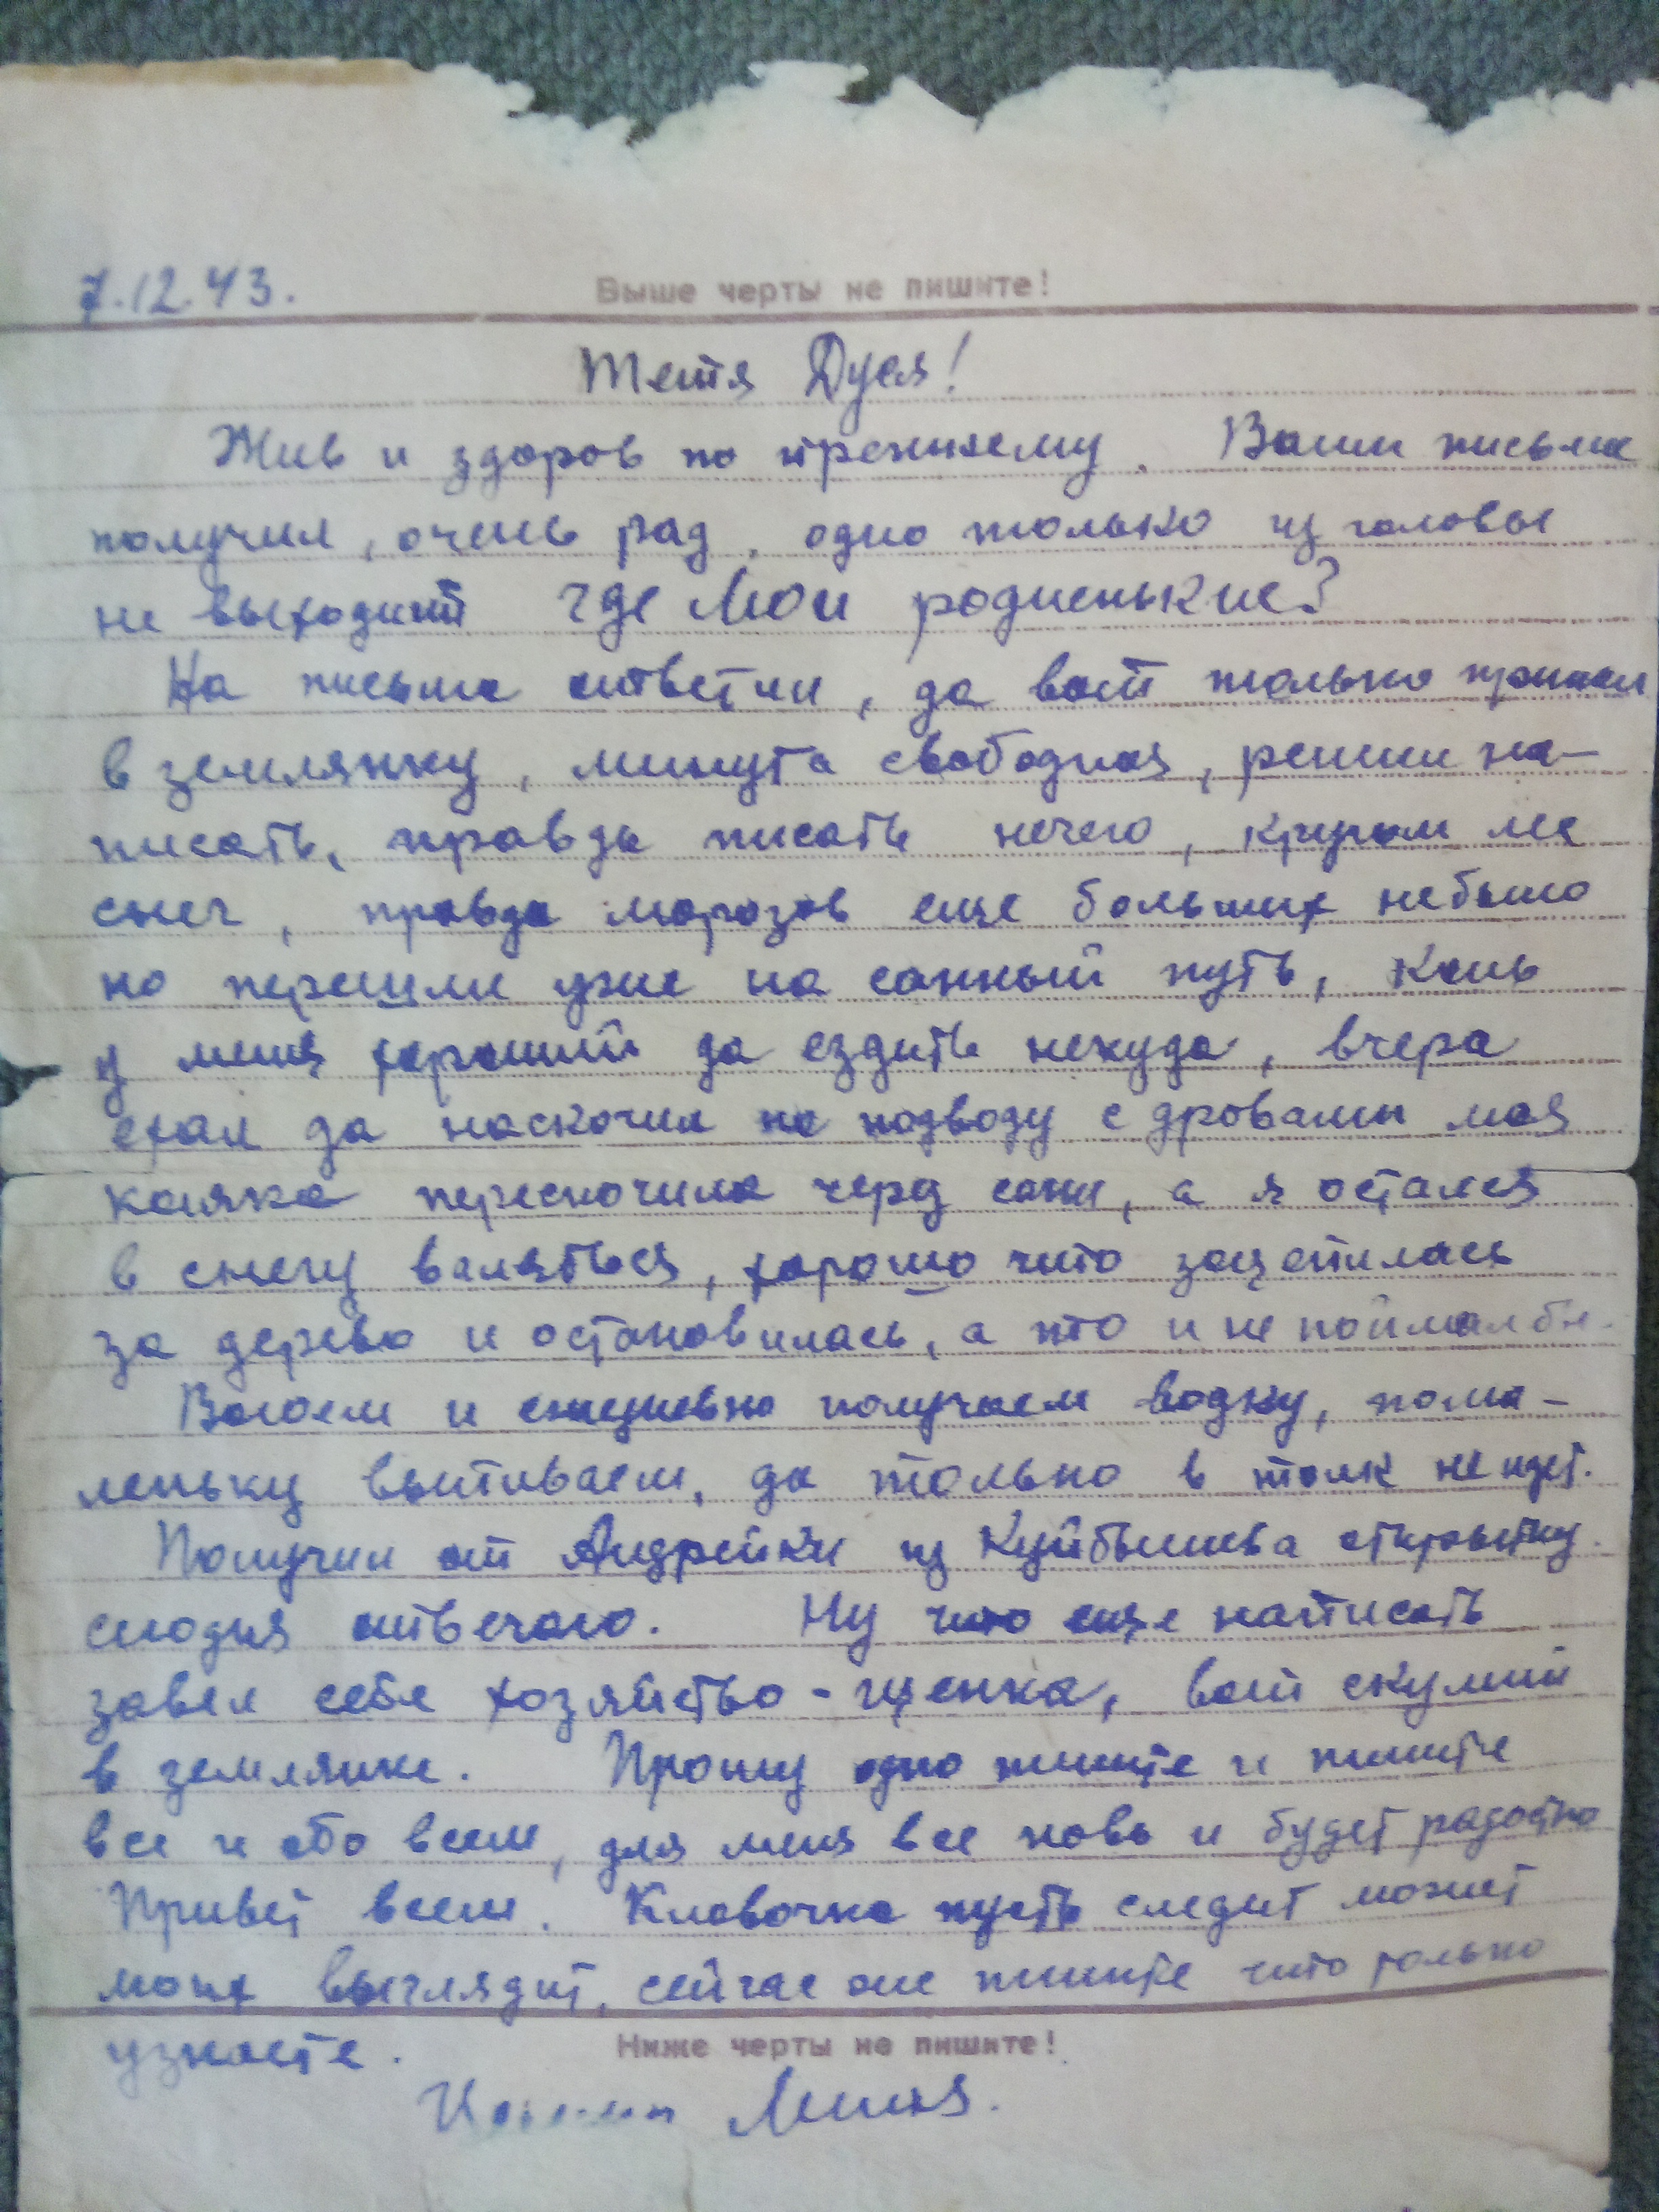 7.12.43.
Выше черты не пишите!
Тетя Дуся!
Жив и здоров по прежнему. Ваши письма
получил, очень рад, одно только из головы
не выходит где мои родненькие?
На письма ответил, да вот только пришел
в землянку, минута свободная, решил на-
писать, правда писать нечего, кругом лес
снег, правда морозов еще больших небыло
но перешли уже на санный путь, конь
у меня хороший да ездить некуда, вчера
ехал да наскочил на подводу с дровами моя
коняка перескочила через сани, а я остался
в снегу валяться, хорошо что зацепилась
за дерево и остановилась, а то и не поймал бы.
Воюем и ежедневно получаем водку, пома-
леньку выпиваем, да только в толк не идет.
Получил от Андрейки из Куйбышева открытку.
сегодня отвечаю. Ну что еще написать
завел себе хозяйство - щенка, вот скулит
в землянке. Прошу одно пишите и пишите
все и обо всем, для меня все новь и будет радостно
Привет всем. Клавочка пусть следит может
моих выглядит, сейчас же пишите что только
узнаете.
Ниже черты не пишите!
Миня.